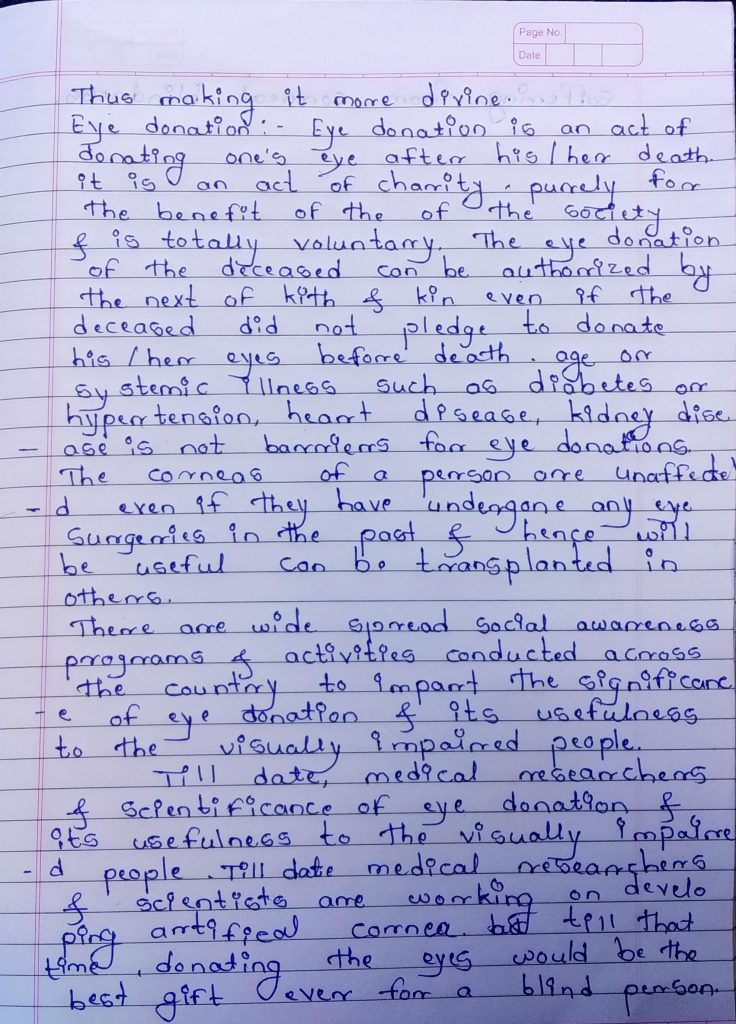 Page No.
Date
Thus making it more divine.
Eye donation :- Eye donation is an act of
donating one's eye after his/her death.
it is an act of charity, purely for
the benefit of the of the society
& is totally voluntary. The eye donation
of the deceased can be authorized by
the next of kith & kin even if the
deceased did not pledge to donate
his/her eyes before death. age or
systemic illness such as diabetes or
hypertension, heart disease, kidney dise
- ase is not barriers for eye donations.
The corneas of a person are unaffecte
- d even if they have undergone any eye
surgeries in the past & hence will
be useful can be transplanted in
others.
There are wide spread social awareness
programs & activities conducted across
the country to impart the significanc
- e of eye donation & its usefulness
to the visually impaired people.
Till date, medical researchers
& scientificance of eye donation &
its usefulness to the visually impaire
- d people. Till date medical researchers
& scientists are working on develo
ping artifical cornea. but till that
time, donating the eyes would be the
best gift ever for a blind person.